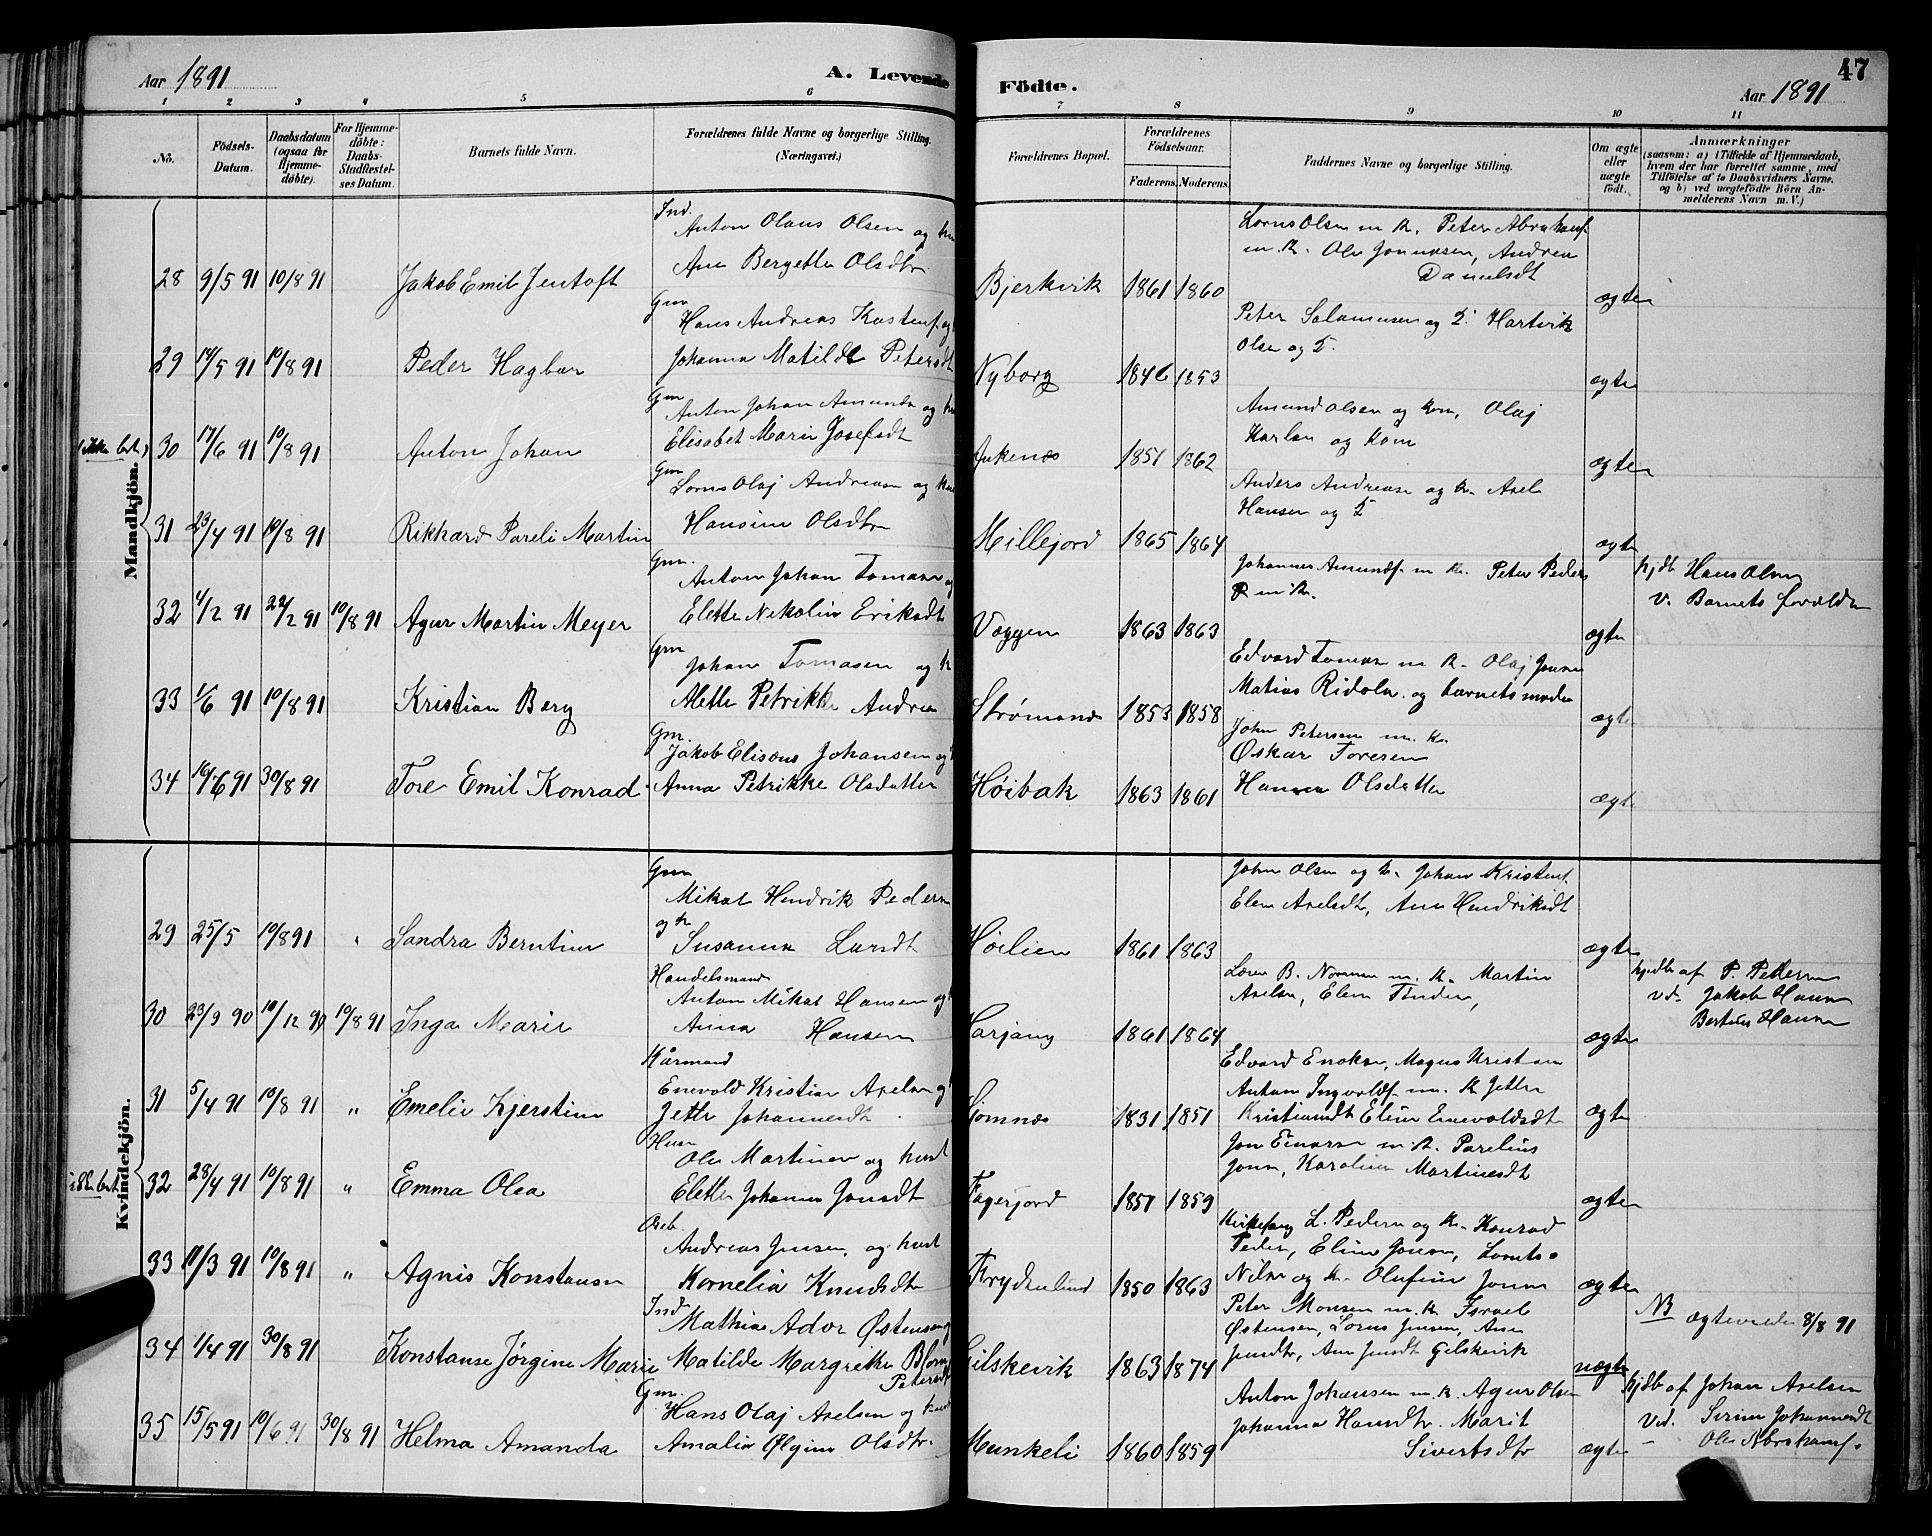 Aar 1891
A. Levende
Födte.
Aar 1891
47
1 2 3 4 5 6 7 8 9 10 11
No.
Födsels-
Datum.
Daabsdatum
(ogsaa for
Hjemme-
döbte).
For Hjemme-
döbte:
Daabs-
Stadfæstel-
ses Datum.
Barnets fulde Navn.
Forældrenes fulde Navne og borgerlige Stilling.
(Næringsvei.)
Forældrenes Bopæl.
Forældrenes
Födselsaar.
Faderens. Moderens.
Faddernes Navne og borgerlige Stilling.
Om ægte
eller
uægte
født.
Anmærkninger
(saasom: a) i Tilfælde af Hjemmedaab,
hvem der har forrettet samme, med
Tilföielse af to Daabsvidners Navne,
og b) ved uægtefödte Börn An-
melderens Navn m. V.)
Mandkjön.
28 9/5 91 10/8 91 Jakob Emil Jentoft
Ind.
Anton Olaus Olsen og
Ane Bergette Olsdtr
Bjerkvik 1861 1860
Lorns Olsen m k. Peter Abrahamf.
m k. Ole Jonnasen, Andrea
Danielsdt
ægte
29 14/5 91 10/8 91 Peder Hagbar
Gm
Hans Andreas Kastenf. og
Johanna Matilde Petersdt
Nyborg 1846 1853
Peter Salamonsen og
Hartvik
Olsen og
ægte
30 17/6 91 10/8 91 Anton Johan
Gm
Anton Johan Amunds og
Elisabet Marie Josefsdt
Ankenes 1851 1862
Amund Olsen og kone, Olaj
Karlsen og kone
ægte
31 23/4 91 10/8 91 Rikhard Pareli Martin
Gm
Lorns Olaj Andreasen og
Hansine Olsdtr
Millejord 1865 1864
Anders Andreasen og k. Axel
Hansen og
ægte
32 4/2 91 22/2 91 10/8 91 Agur Martin Meyer
Gm.
Anton Johan Tomasen og
Elette Nekolin Eriksdt
Væggen 1863 1863
Johannes Amundf. m k. Peter Peders
m k.
ægte
hjdb Hans Olsen
v. Barnets forældre
33 1/6 91 10/8 91 Kristian Berg
Gm
Johan Tomasen og k
Alette Petrikke Andrea
Strømsnes 1853 1858
Edvard Tomasen m k. Olaj Jonsen
Matias Ridoln. og barnets moder
ægte
34 10/6 91 30/8 91 Tore Emil Konrad
Gm.
Jakob Elisæus Johansen og
Anna Petrikke Olsdatter
Høibak 1863 1861
John Petersen m. k.
Øskar Toresen
Hanna Olsdatter
ægte
Kvindekjön.
29 25/5 10/8 91 Sandra Berntine
Gm
Mikal Hendrik Pedersen
og k
Susanna Larsdt
Høilien 1861 1863
John Olsen og k. Johan Kristenf.
Elen Axelsdt, Ane Hendriksdt
ægte
30 23/9 90 10/12 90 10/8 91 Inga Marie
Handelsmand
Anton Mikal Hansen og
Anna Hansen
Harjang 1861 1864
Martin
Axelsen, Elen
ægte
hjdb af P. Pedersen
vd. Jakob Hansen
Berteus Hansen
31 5/4 91 10/8 91 " Emelie Kjerstine
Kårmand
Enevold Kristian Axelsen og
Jette Johannesdt
1831 1851
Edvard Enoksen, Magnus Kristian
Anton Ingvoldf. m. k Jette
Kristiansdt Eline Enevoldsdt
ægte
32 28/4 91 10/8 91 " Emma Olea
Ole Martinsen og hust
Elette Johanna Jonsdt
Fagerjord 1857 1859
Jon Einarsen m. k. Parelius
Jonsen, Karoline Martinesdt
ægte
33 11/3 91 10/8 91 " Agnis Konstanse
Andreas Jensen, og hust
Kornelia Knudsdt
Frydenlund 1850 1863
Kirkesang L. Pedersen og k. Konrad
Peder, Eline Jonsen,
Nilsen og k. Olufine Jonsen
ægte
34 1/4 91 30/8 91 Konstanse Jørgine Marie
Ind
Mathias Ador Østensen og
Matilde Margrethe Blom
Petersdt
Gilskevik 1863 1874
Peter Monsen m. k. Israel
Østensen, Lorns Jensen, Ane
Jensdtr, Ane Jensdt Gilskevik
uægte
NB ægteviede 8/8 91
35 15/5 91 10/6 91 30/8 91 Helma Amanda
Gm.
Hans Olaj Axelsen og hust
Amalie Ølgine Olsdtr.
Munkeli 1860 1859
Anton Johansen m. k. Agur Olsen
Johanna Hansdtr. Marit
Sivertsdtr
ægte
hjdb af Johan Axelsen
Ved. Sirine Johannesdt
- Ole Abrahamf.